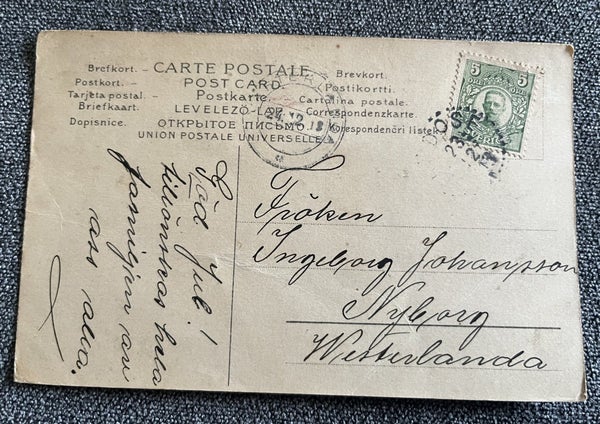 Brefkort. – CARTE POSTALE. – Brevkort.
Postkort. – POST CARD. – Postikortti.
Tarjeta postal. – Postkarte. – Cartolina postale.
Briefkaart. – LEVELEZŐ-LAP – Correspondenzkarte.
Dopisnice. – ОТКРЫТОЕ ПИСЬМО. – Korespondenčri listek
UNION POSTALE UNIVERSELLE
24.12.13
5 5
23
12
God Jul!
tillönskas hela
familjen av
oss alla.
Fröken
Ingeborg Johansson
Nyborg
Westerlanda